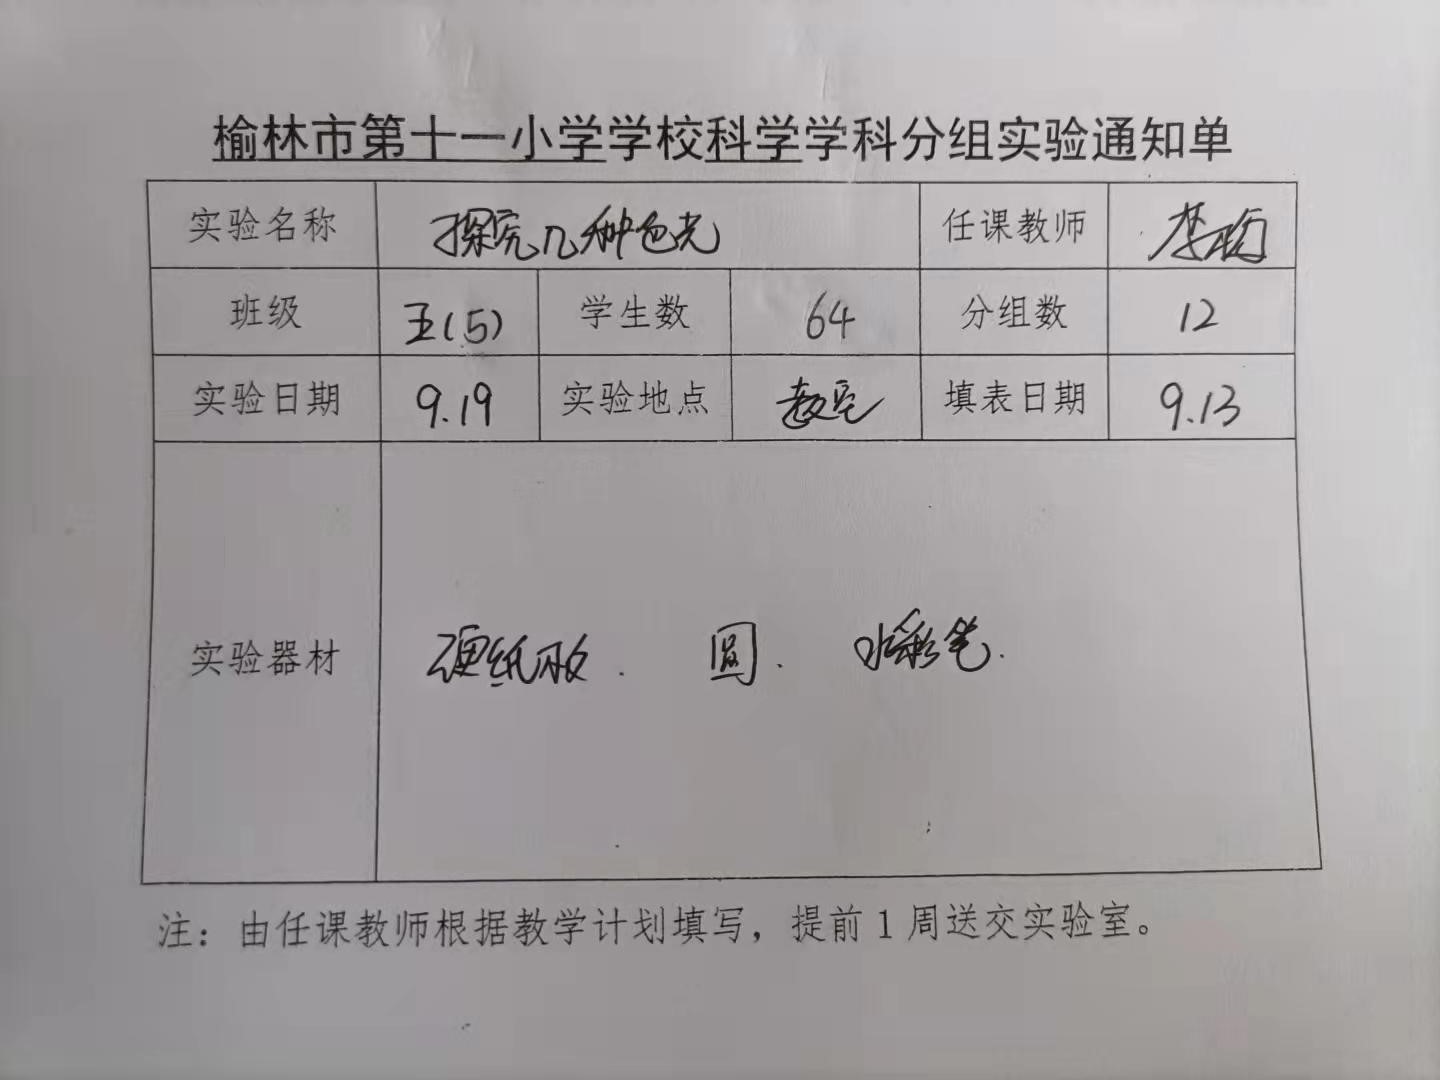 榆林市第十一小学学校科学学科分组实验通知单
实验名称 探究几种色光 任课教师 李
班级 五(5) 学生数 64 分组数 12
实验日期 9.19 实验地点 教室 填表日期 9.13
实验器材 硬纸板. 圆. 水彩笔.
注：由任课教师根据教学计划填写，提前1周送交实验室。